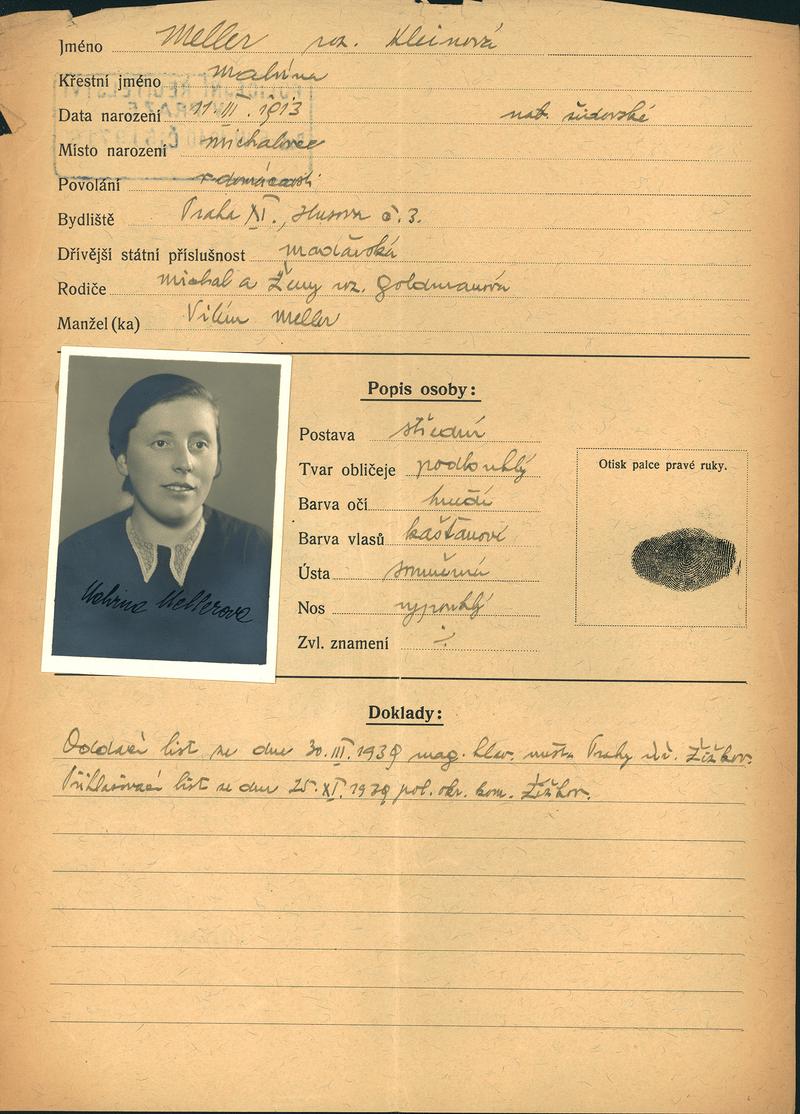 Jméno Meller roz. Kleinová
Křestní jméno Malvina
Data narození 11.III.1913 náb. židovské
Místo narození Michalovce
Povolání v domácnosti
Bydliště Praha XI., Husova č. 3.
Dřívější státní příslušnost maďarská
Rodiče Michal a Ženy roz. Goldmanova
Manžel (ka) Vilém Meller
Popis osoby:
Postava střední
Tvar obličeje podlouhlý
Barva očí hnědé
Barva vlasů kaštanové
Ústa souměrná
Nos vypouklý
Zvl. znamení
Otisk palce pravé ruky.
Malvina Mellerova
Doklady:
Oddací list ze dne 30.III.1939 mag. hlav. města Prahy Žižkov.
Přihlašovací list ze dne 25.XI.1939 pol. okr. kom. Žižkov.